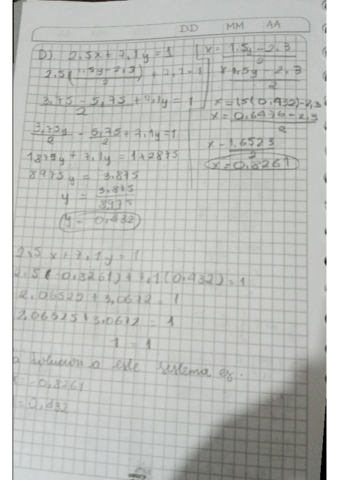 DD MM AA
D) 2,5x + 7,1y = 1
2,5(1,5y - 2,3 / 2) + 7,1 = 1
3,75 - 5,75 / 2 + 7,1y = 1
3,75y / 2 - 5,75 / 2 + 7,1y = 1
1875y + 7,1y = 1 + 2875
8975y = 3.875
y = 3.875 / 8975
y = 0,432
x = 1,5y - 2,3 / 2
x 1,5y - 2,3 / 2
x = 1,5(0,432) - 2,3
x = 0,6476 - 2,3 / 2
x - 1.6523 / 2
x = 0,8261
2,5x + 7,1y = 1
2,5(-0,8261) + 7,1(0,432) = 1
2,06525 + 3,0672 = 1
2,06525 + 3,0672 = 1
1 = 1
a solucion a este sistema es.
x = -0,8261
= 0,432